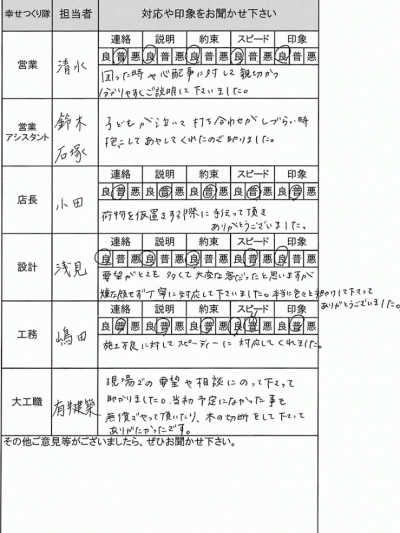 幸せつくり隊 担当者 対応や印象をお聞かせ下さい
営業 清水
連絡 説明 約束 スピード 印象
良 普 悪 良 普 悪 良 普 悪 良 普 悪 良 普 悪
困った時や心配事に対して親切か
分かりやすくご説明して下いました。
営業
アシスタント
鈴木
石塚
子どもが泣いて打ち合わせがしづらい時
抱っこしてあやしてくれたので助りました。
店長 小田
連絡 説明 約束 スピード 印象
良 普 悪 良 普 悪 良 普 悪 良 普 悪 良 普 悪
荷物を仮置きする際に手伝って頂き
ありがとうございました。
設計 浅見
連絡 説明 約束 スピード 印象
良 普 悪 良 普 悪 良 普 悪 良 普 悪 良 普 悪
要望がとても多くて大変な客だったと思いますが
嫌な顔せず丁寧に対応して下さいました。本当に色々と助けて下さって
ありがとうございました。
工務 嶋田
連絡 説明 約束 スピード 印象
良 普 悪 良 普 悪 良 普 悪 良 普 悪 良 普 悪
施工不良に対してスピーディーに対応してくれました。
大工職 建築
現場での要望や相談にのって下さって
助かりました。当初予定になかった事も
無償でやって頂いたり、木の切断をして下さって
ありがたかったです。
その他ご意見等がございましたら、ぜひお聞かせ下さい。